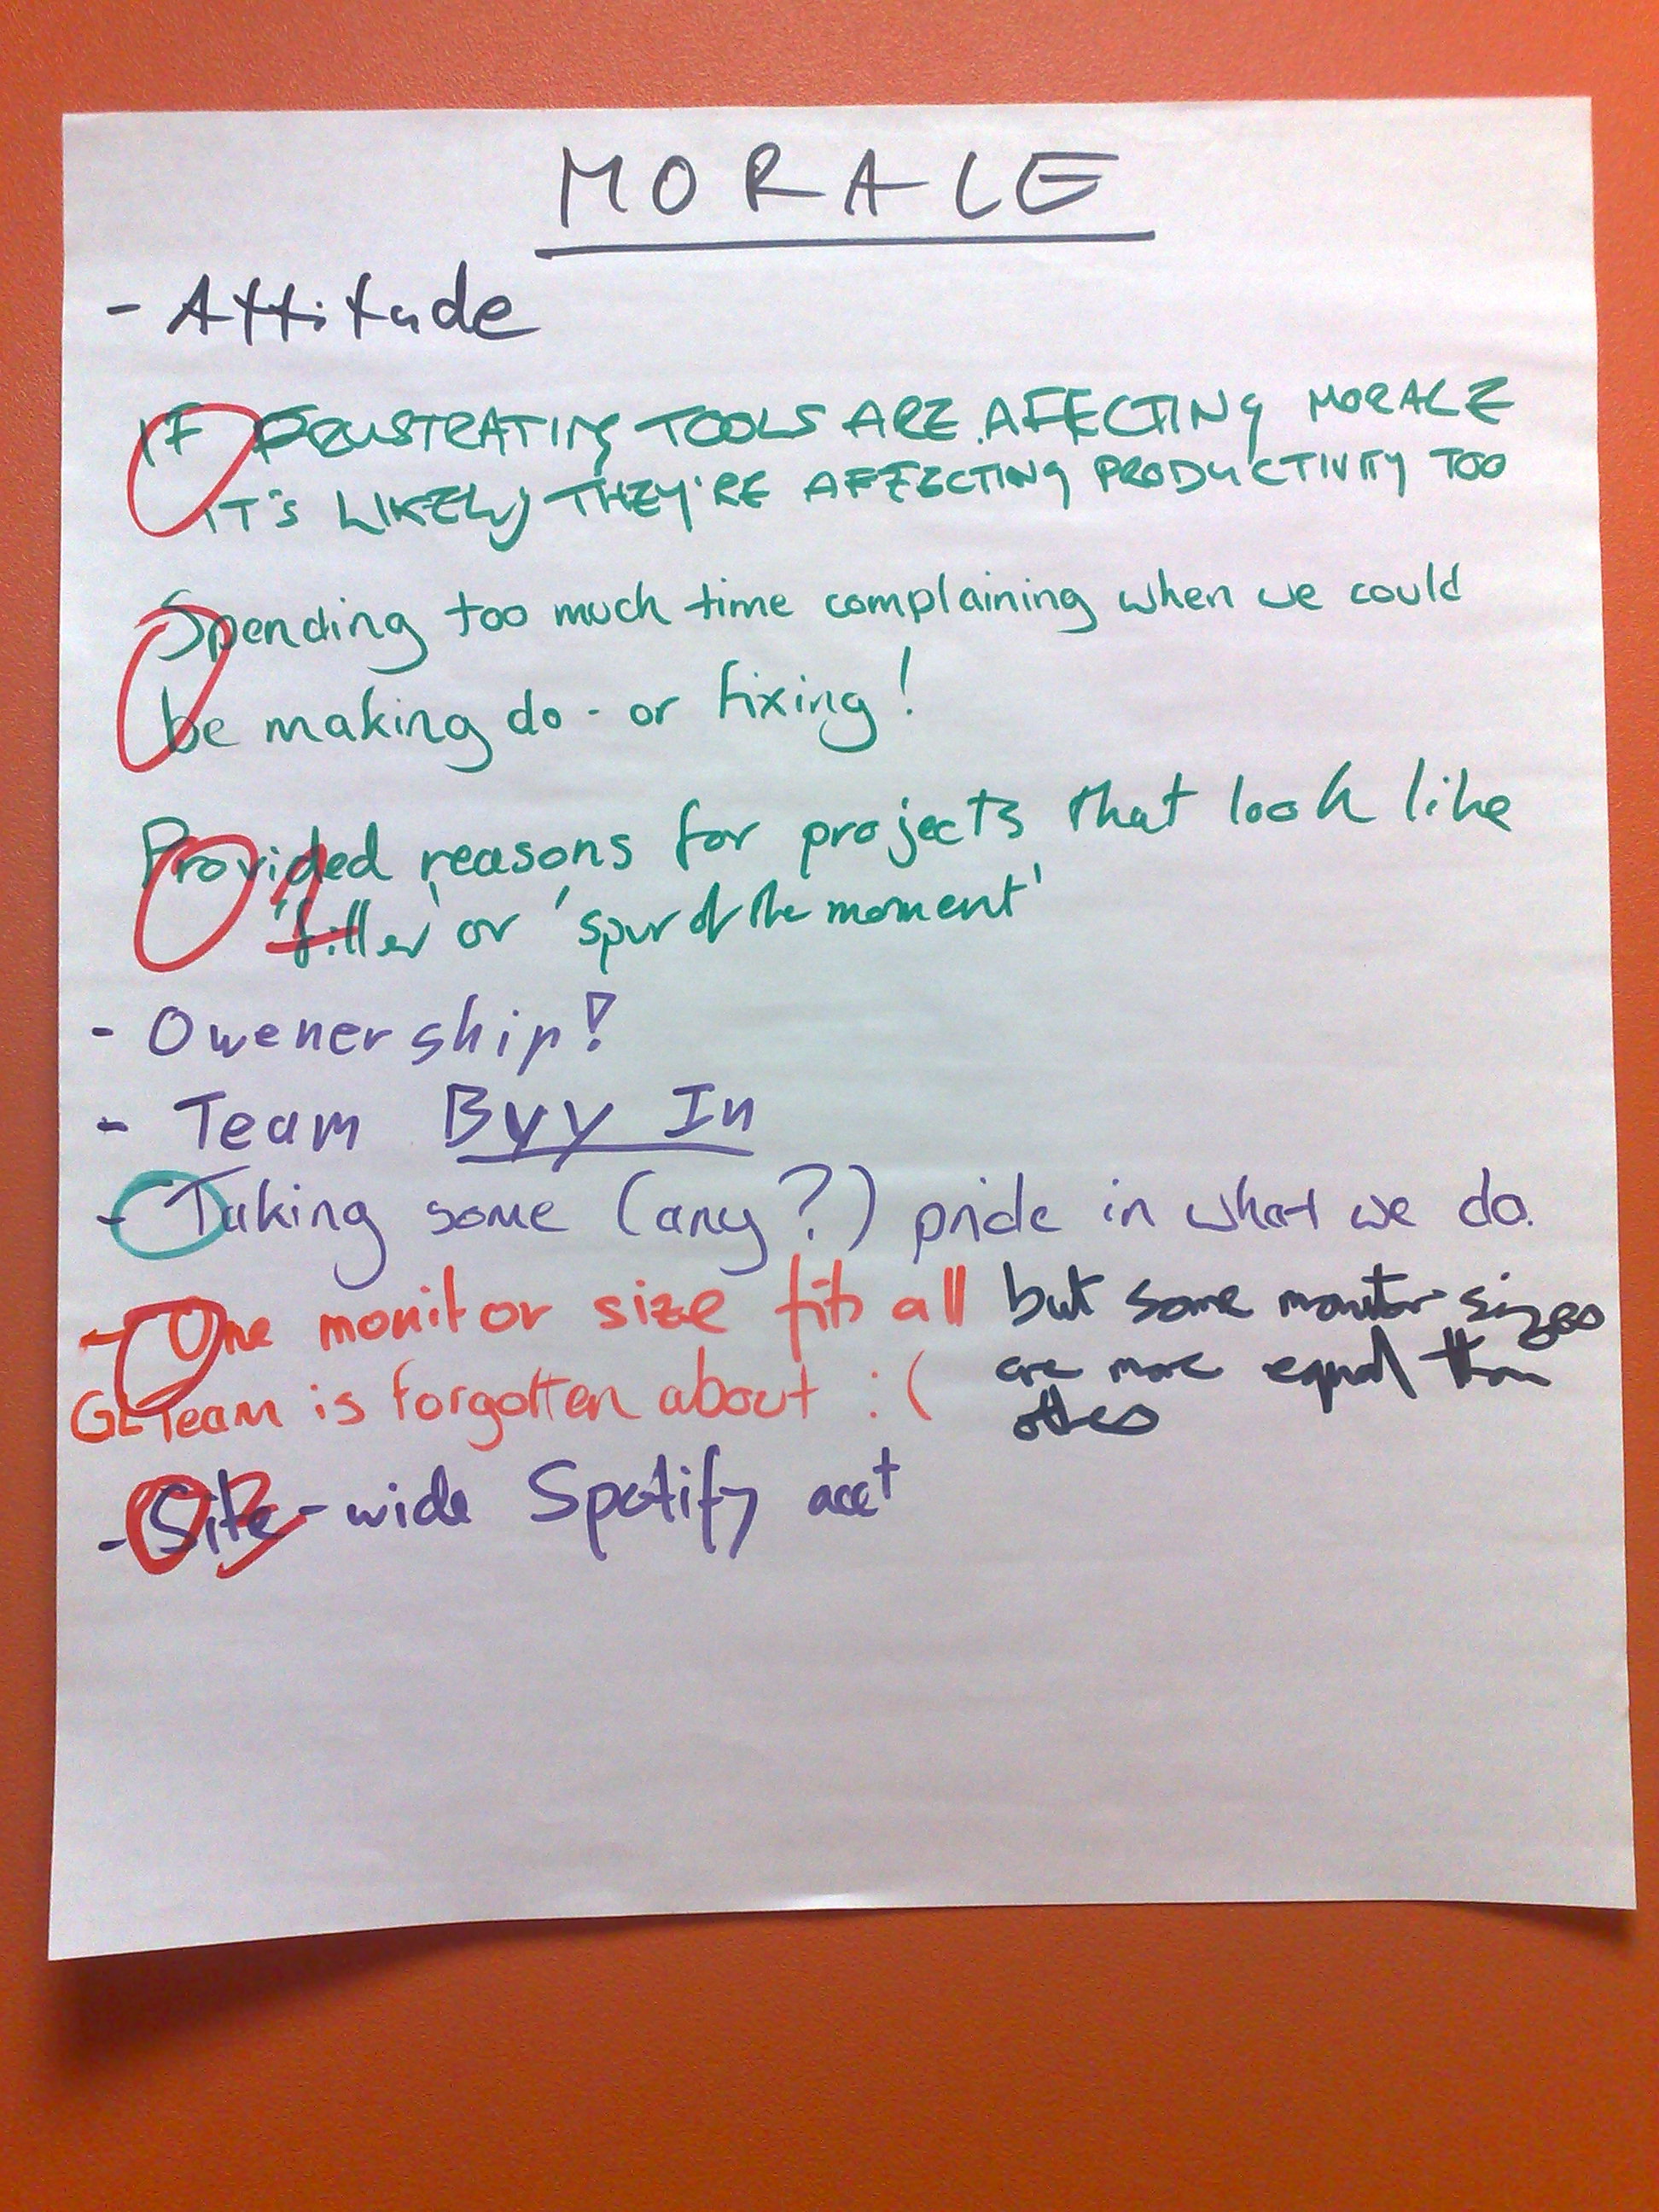 MORALE
- Attitude
IF FRUSTRATING TOOLS ARE AFFECTING MORALE
IT'S LIKELY THEY'RE AFFECTING PRODUCTIVITY TOO
Spending too much time complaining when we could
be making do - or fixing!
Provided reasons for projects that look like
'filler' or 'spur of the moment'
- Owenership!
- Team Buy In
- Taking some (any?) pride in what we do.
- One monitor size fits all but some monitor sizes
are more equal than
others
GL Team is forgotten about :(
- Site-wide Spotify acct